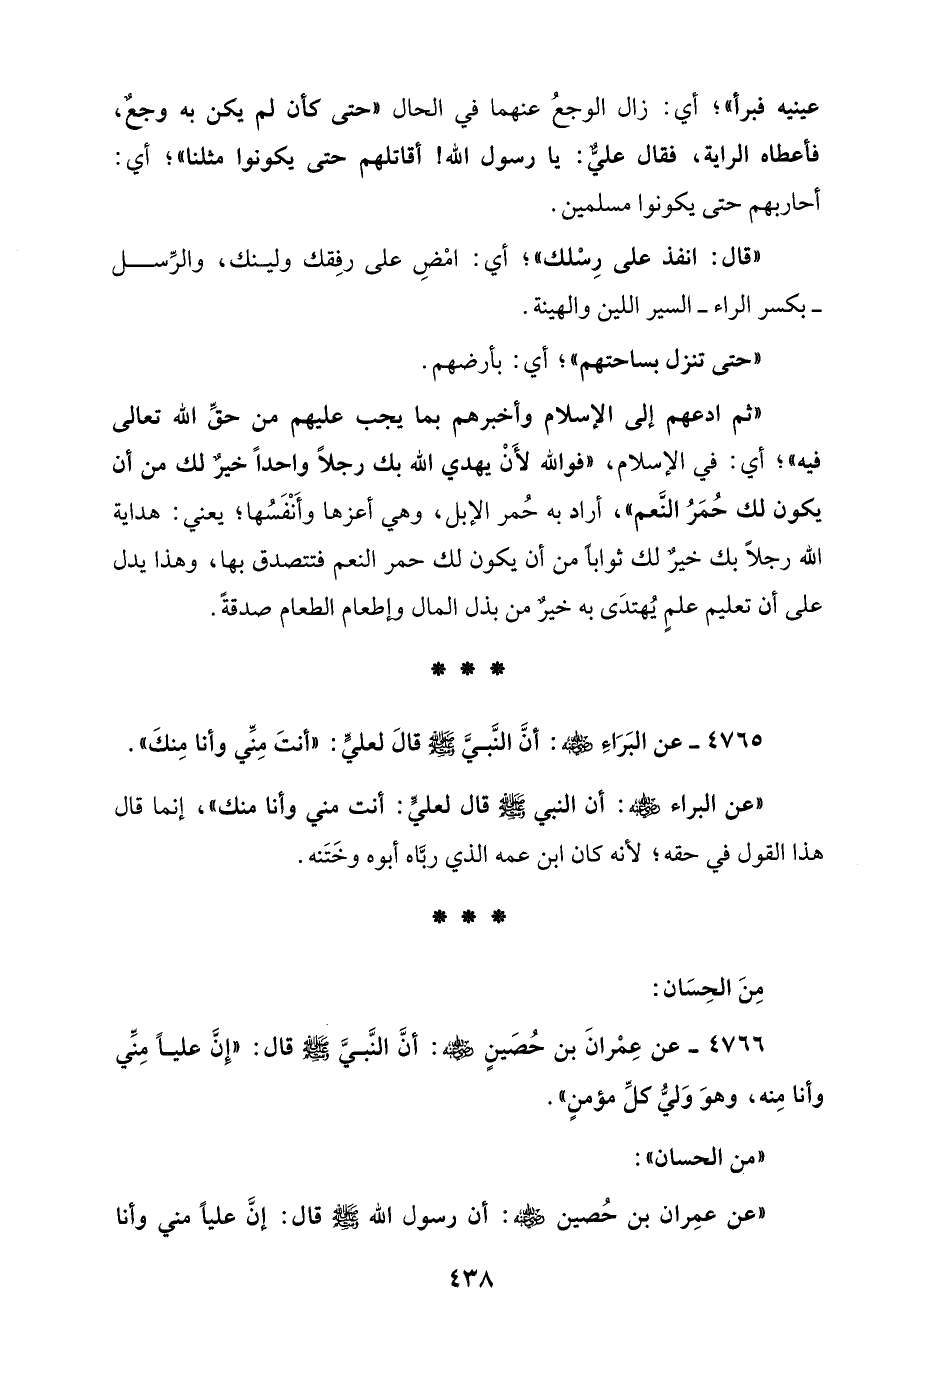 عينيه فبرأ»؛ أي: زال الوجعُ عنهما في الحال «حتى كأن لم يكن به وجعٌ،
فأعطاه الراية، فقال عليٌّ: يا رسول الله! أقاتلهم حتى يكونوا مثلنا»؛ أي:
أحاربهم حتى يكونوا مسلمين.
«قال: انفذ على رِسْلك»؛ أي: امْضِ على رفِقك ولينك، والرِّسل
ـ بكسر الراء ـ السير اللين والهينة.
«حتى تنزل بساحتهم»؛ أي: بأرضهم.
«ثم ادعهم إلى الإسلام وأخبرهم بما يجب عليهم من حقِّ الله تعالى
فيه»؛ أي: في الإسلام، «فوالله لأَنْ يهدي الله بك رجلاً واحداً خيرٌ لك من أن
يكون لك حُمَرُ النَّعم»، أراد به حُمر الإبل، وهي أعزها وأَنْفَسُها؛ يعني: هداية
الله رجلاً بك خيرٌ لك ثواباً من أن يكون لك حمر النعم فتتصدق بها، وهذا يدل
على أن تعليم علمٍ يُهتدَى به خيرٌ من بذل المال وإطعام الطعام صدقةً.
* * *
٤٧٦٥ ـ عن البَرَاءِ ﵁: أنَّ النَّبيَّ ﷺ قالَ لعليٍّ: «أنتَ مِنِّي وأنا مِنكَ».
«عن البراء ﵁: أن النبي ﷺ قال لعليٍّ: أنت مني وأنا منك»، إنما قال
هذا القول في حقه؛ لأنه كان ابن عمه الذي ربَّاه أبوه وخَتَنه.
* * *
مِنَ الحِسَان:
٤٧٦٦ ـ عن عِمْرانَ بن حُصَينٍ ﵁: أنَّ النَّبيَّ ﷺ قال: «إنَّ علياً مِنِّي
وأنا مِنه، وهوَ وَليُّ كلِّ مؤمنٍ».
«من الحسان»:
«عن عمِران بن حُصين ﵁: أن رسول الله ﷺ قال: إنَّ علياً مني وأنا
٤٣٨